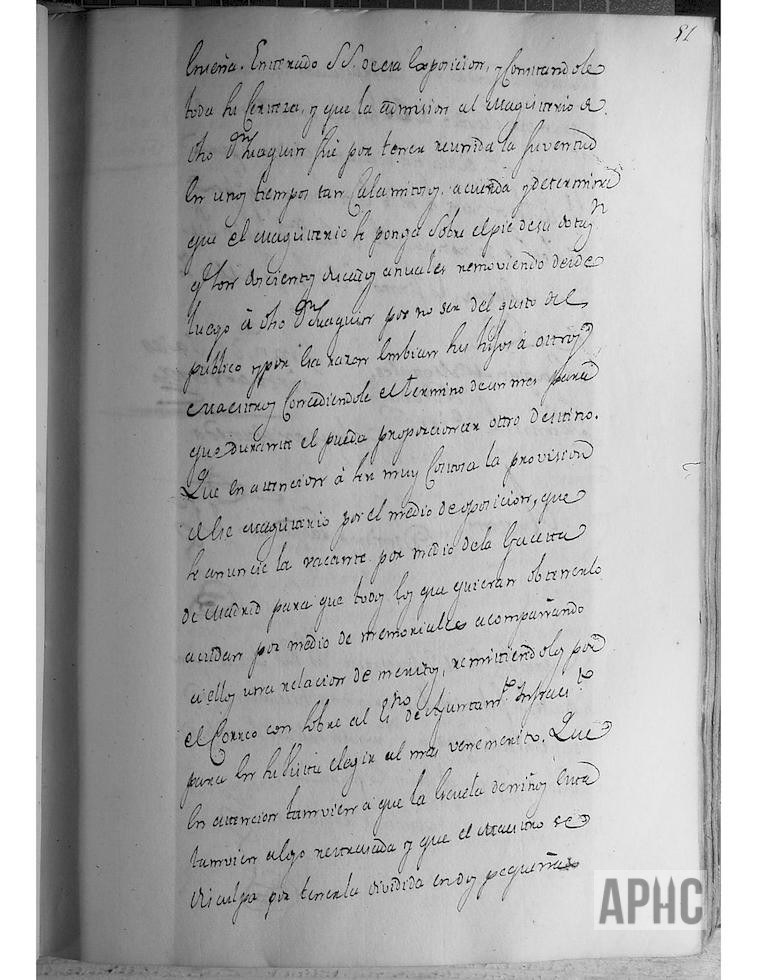 51
Enseña. Enterado S.S. de esta Exposicion, y Constandole
toda su Certeza, y que la admision al Magisterio de
dho Dn Joaquin fue por tener reunida la Juventud
en unos tiempos tan Calamitosos, acuerda y determina
que el Magisterio se ponga Sobre el pie de su dotn
y con doscientos ducados anuales removiendo desde
luego à dho Dn Joaquin por no ser del gusto del
publico y por esa razon embian sus hijos à ottros
Maestros Concediendole el termino de un mes para
que durante el pueda proporcionar ottro destino.
Que en attencion à ser muy Costosa la provision
de ese Magisterio por el medio de oposicion, que
se anuncie la vacante por medio de la Gaceta
de Madrid para que todos los que quieran obtenerlo
acudan por medio de memoriales acompañando
a ellos una relacion de meritos, remitiendolos por
el Correo con sobre al Sno de Ayuntamto Infraescto
para en su vista elegir al mas venemerito. Que
en attencion tamvien a que la Escuela de niños esta
tamvien algo retrasada y que el Maestro se
disculpa por tenerla dividida en dos pequeñas
APHC